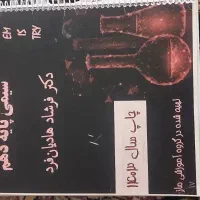 EM
IS
TRY
شیمی پایه دهم
دکتر فرشاد هادیان فرد
چاپ سال ۱۴۰۳
تهیه شده در گروه آموزشی ماز